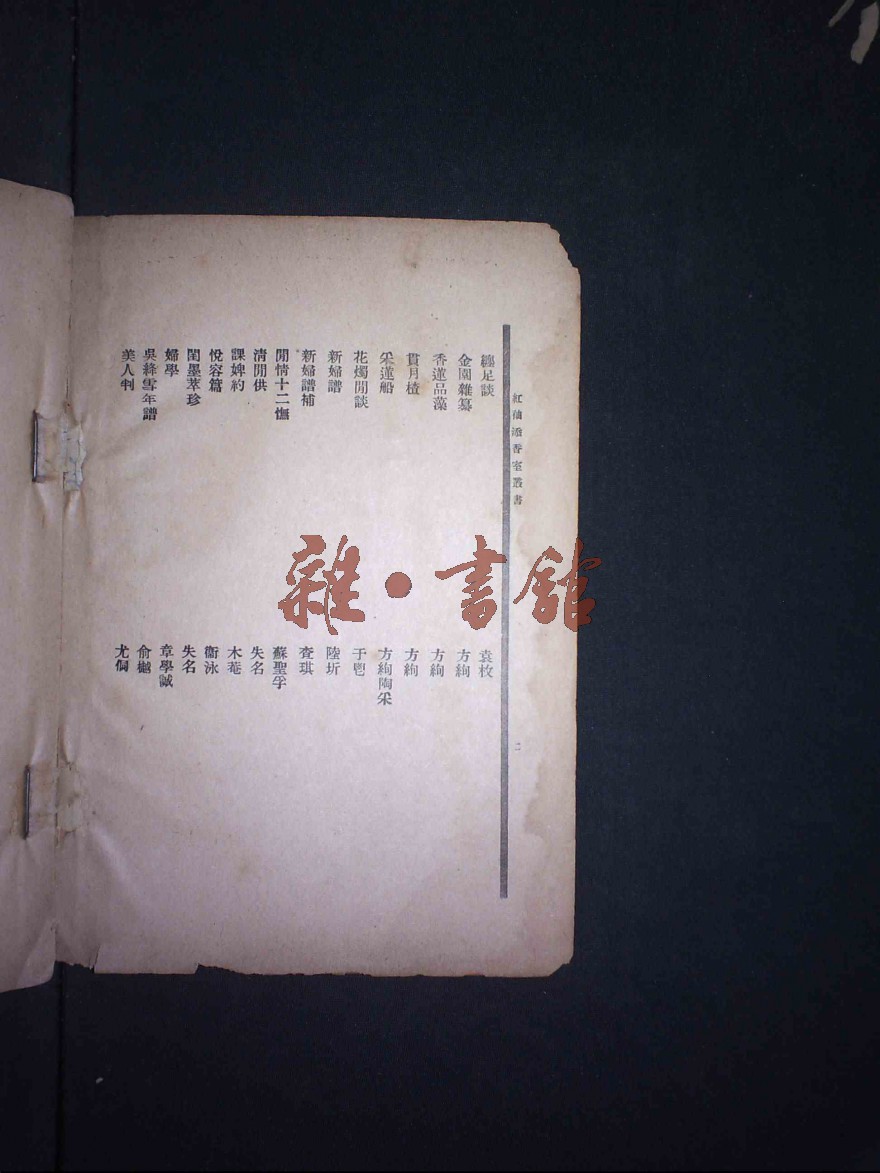 紅袖添香室叢書
二
纏足談 袁枚
金園雜纂 方絢
香蓮品藻 方絢
貫月楂 方絢
采蓮船 方絢陶采
花燭閒談 于鬯
新婦譜 陸圻
新婦譜補 查琪
閒情十二憮 蘇聖孚
清閒供 失名
課婢約 木菴
悅容篇 衞泳
閨墨萃珍 失名
婦學 章學誠
吳絳雪年譜 俞樾
美人判 尤侗
雜·書館